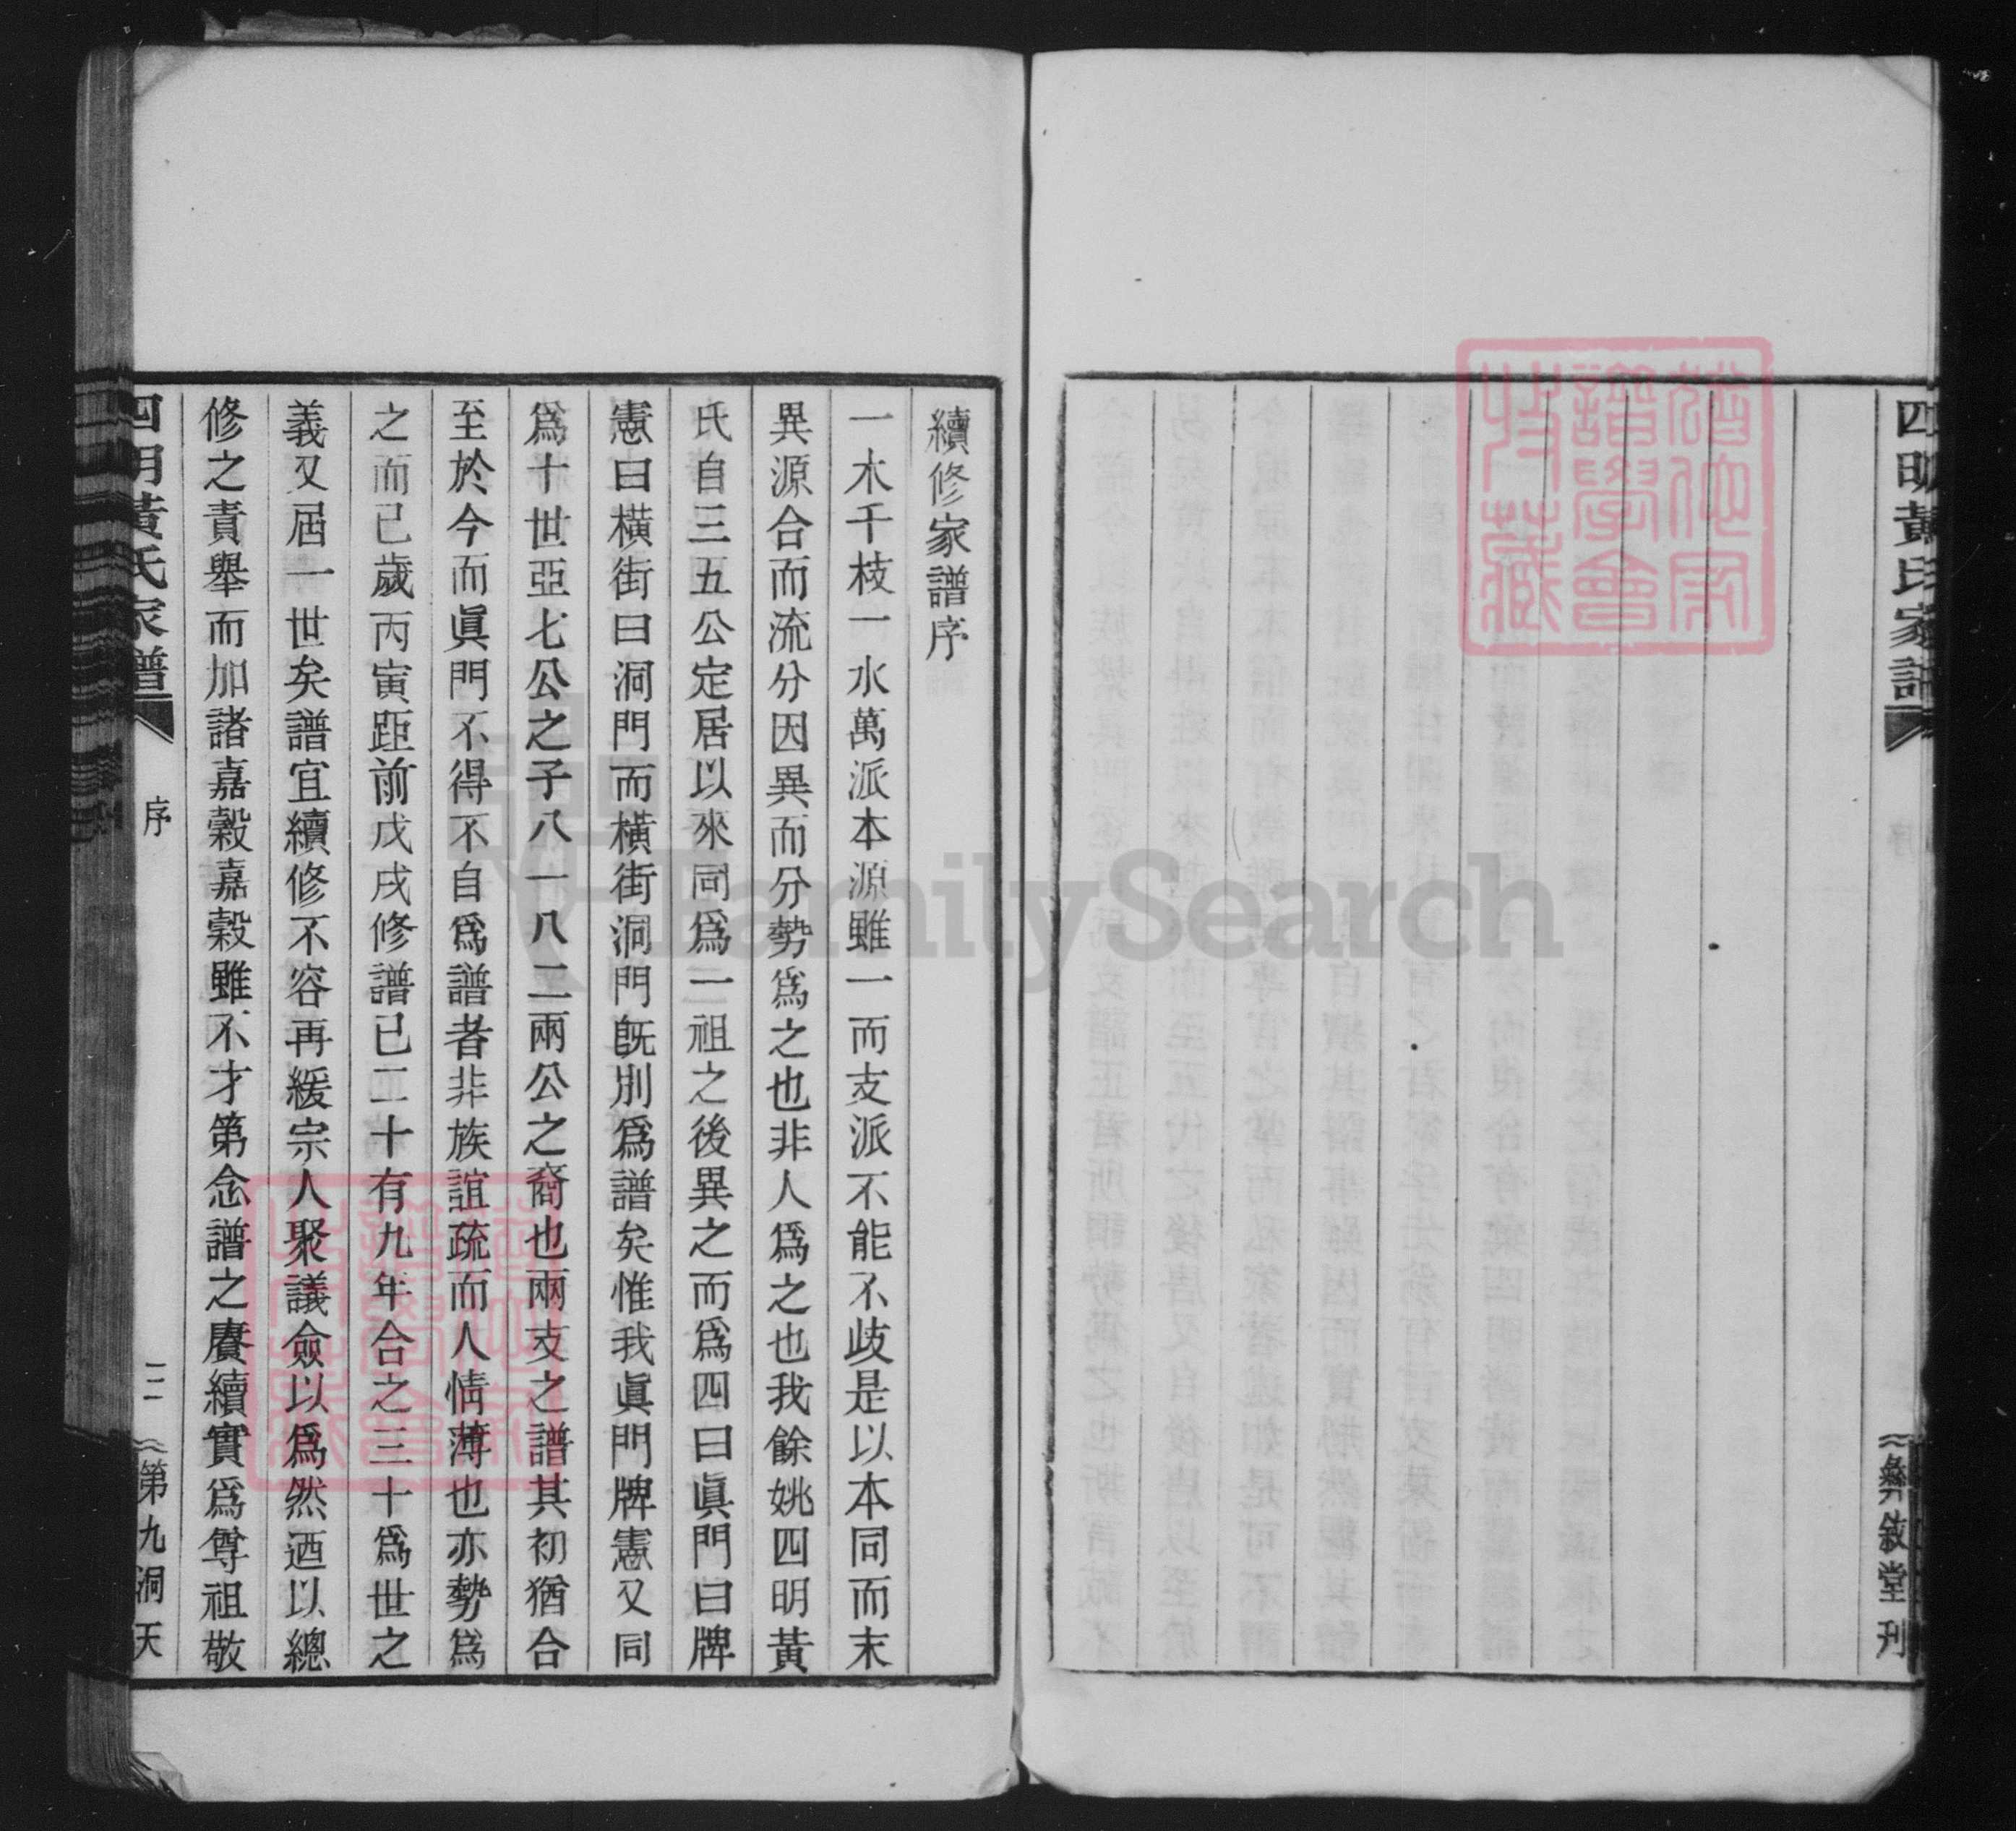 四明黃氏家譜
彝敘堂刊
續修家譜序
一木千枝一水萬派本源雖一而支派不能不歧是以本同而末
異源合而流分因異而分勢爲之也非人爲之也我餘姚四明黃
氏自三五公定居以來同爲一祖之後異之而爲四曰眞門曰牌
憲曰橫街曰洞門而橫街洞門旣別爲譜矣惟我眞門牌憲又同
爲十世亞七公之子八一八二兩公之裔也兩支之譜其初猶合
至於今而眞門不得不自爲譜者非族誼疏而人情薄也亦勢爲
之而已歲丙寅距前戊戌修譜已二十有九年合之三十爲世之
義又屆一世矣譜宜續修不容再緩宗人聚議僉以爲然迺以總
修之責舉而加諸嘉穀嘉穀雖不才第念譜之賡續實爲尊祖敬
四明黃氏家譜
序
二
第九洞天
譜學會
FamilySearch